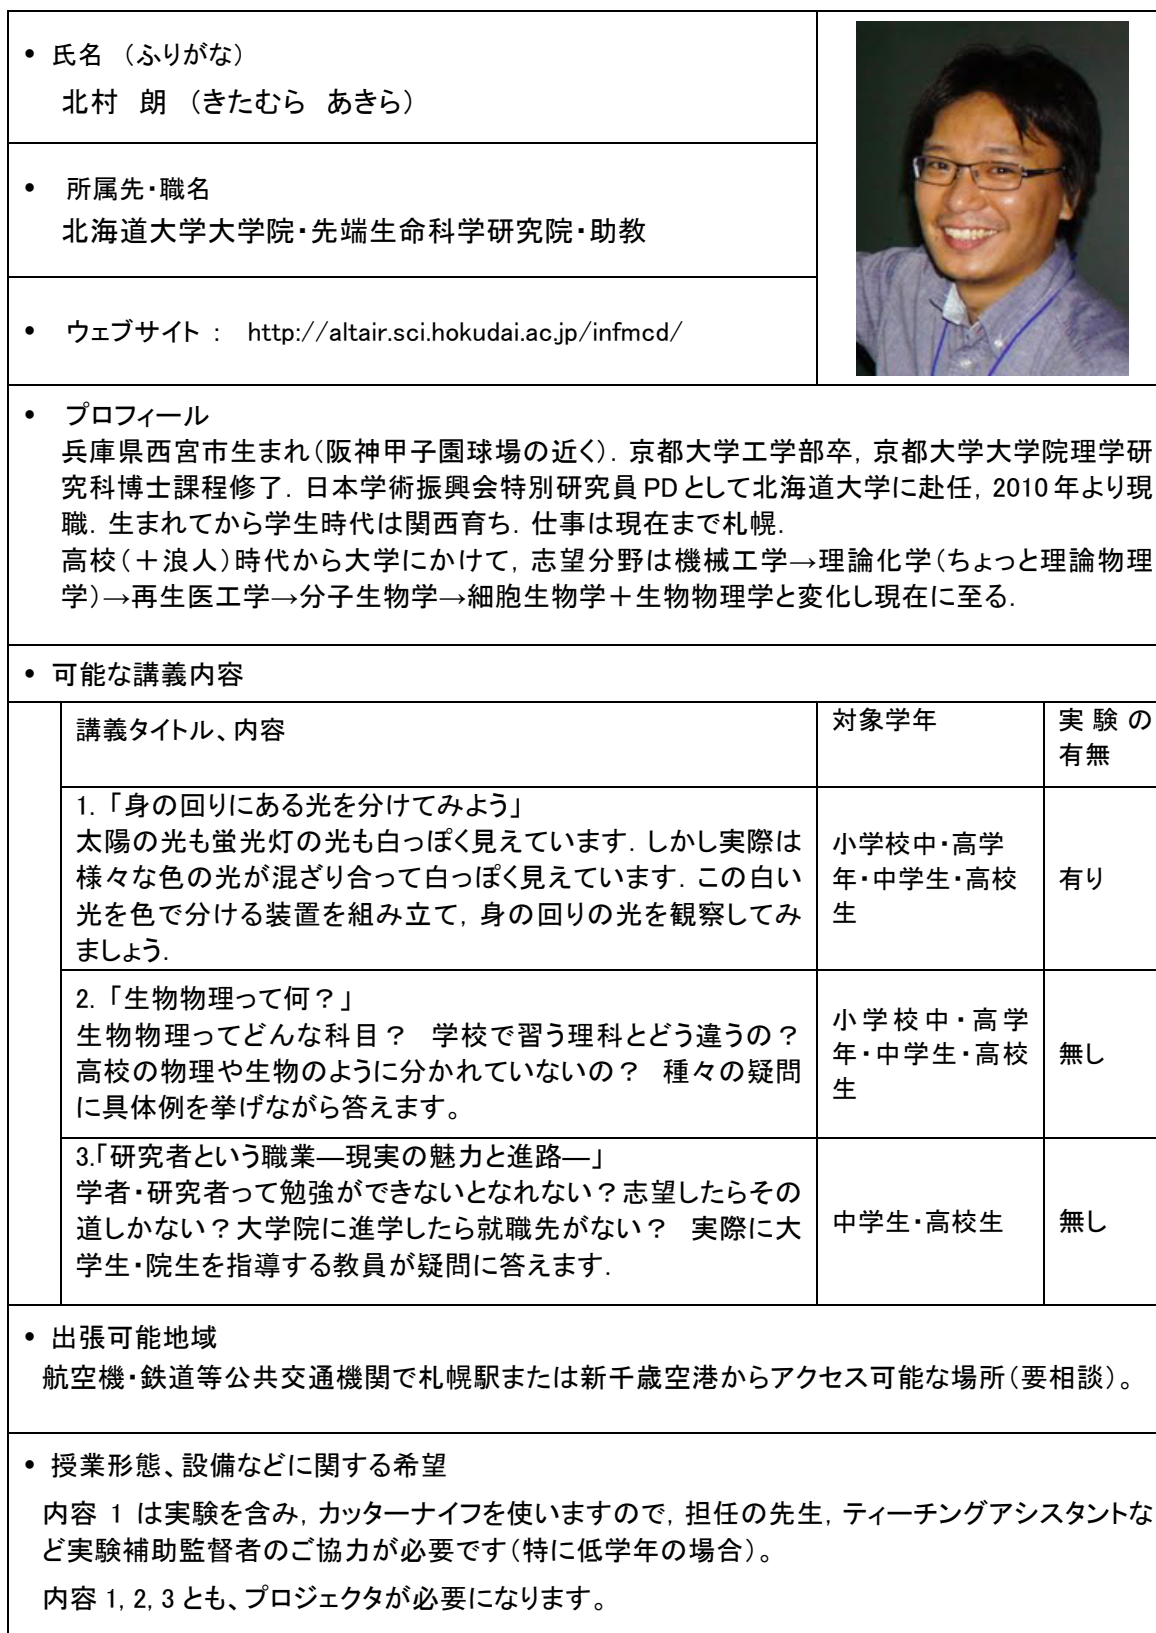 • 氏名 （ふりがな）
北村 朗 （きたむら あきら）
• 所属先・職名
北海道大学大学院・先端生命科学研究院・助教
• ウェブサイト ： http://altair.sci.hokudai.ac.jp/infmcd/
• プロフィール
兵庫県西宮市生まれ（阪神甲子園球場の近く）．京都大学工学部卒，京都大学大学院理学研
究科博士課程修了．日本学術振興会特別研究員 PD として北海道大学に赴任，2010 年より現
職．生まれてから学生時代は関西育ち．仕事は現在まで札幌．
高校（＋浪人）時代から大学にかけて，志望分野は機械工学→理論化学（ちょっと理論物理
学）→再生医工学→分子生物学→細胞生物学＋生物物理学と変化し現在に至る．
• 可能な講義内容
講義タイトル、内容
対象学年
実 験 の
有無
1. 「身の回りにある光を分けてみよう」
太陽の光も蛍光灯の光も白っぽく見えています．しかし実際は
様々な色の光が混ざり合って白っぽく見えています．この白い
光を色で分ける装置を組み立て，身の回りの光を観察してみ
ましょう．
小学校中・高学
年・中学生・高校
生
有り
2. 「生物物理って何？」
生物物理ってどんな科目？ 学校で習う理科とどう違うの？
高校の物理や生物のように分かれていないの？ 種々の疑問
に具体例を挙げながら答えます。
小学校中・高学
年・中学生・高校
生
無し
3.「研究者という職業―現実の魅力と進路―」
学者・研究者って勉強ができないとなれない？志望したらその
道しかない？大学院に進学したら就職先がない？ 実際に大
学生・院生を指導する教員が疑問に答えます．
中学生・高校生
無し
• 出張可能地域
航空機・鉄道等公共交通機関で札幌駅または新千歳空港からアクセス可能な場所（要相談）。
• 授業形態、設備などに関する希望
内容 1 は実験を含み，カッターナイフを使いますので，担任の先生，ティーチングアシスタントな
ど実験補助監督者のご協力が必要です（特に低学年の場合）。
内容 1, 2, 3 とも、プロジェクタが必要になります。